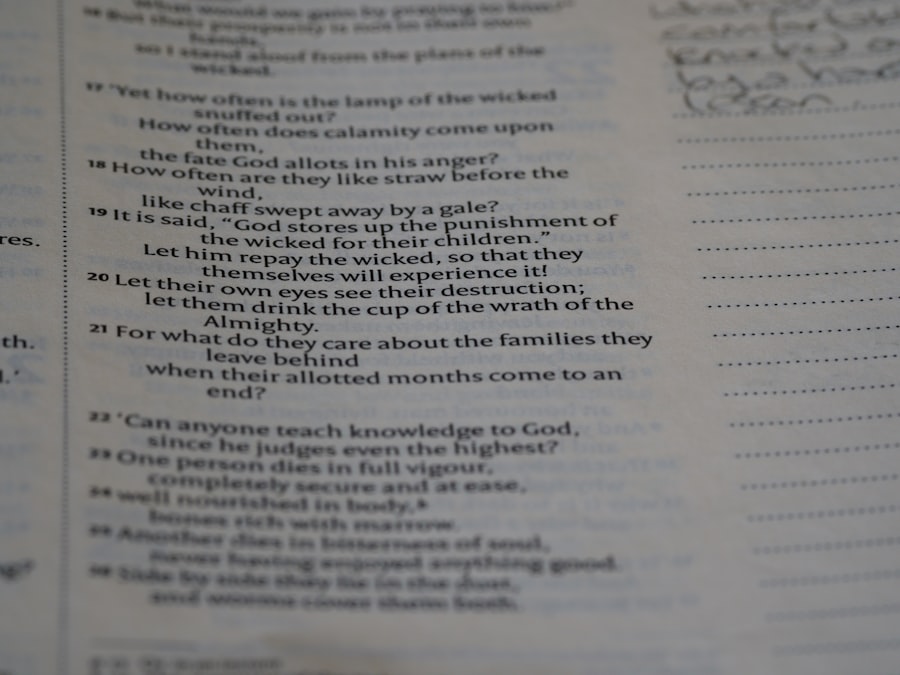 "What would we gain by praying to him?"
16 But their prosperity is not in their own
hands,
so I stand aloof from the plans of the
wicked.
17 'Yet how often is the lamp of the wicked
snuffed out?
How often does calamity come upon
them,
the fate God allots in his anger?
18 How often are they like straw before the
wind,
like chaff swept away by a gale?
19 It is said, "God stores up the punishment of
the wicked for their children."
Let him repay the wicked, so that they
themselves will experience it!
20 Let their own eyes see their destruction;
let them drink the cup of the wrath of the
Almighty.
21 For what do they care about the families they
leave behind
when their allotted months come to an
end?
22 'Can anyone teach knowledge to God,
since he judges even the highest?
23 One person dies in full vigour,
completely secure and at ease,
24 well nourished in body,
bones rich with marrow.
25 Another dies in bitterness of soul,
never having enjoyed anything good.
26 Side by side they lie in the dust,
and worms cover them both.
res.
th.
l.'